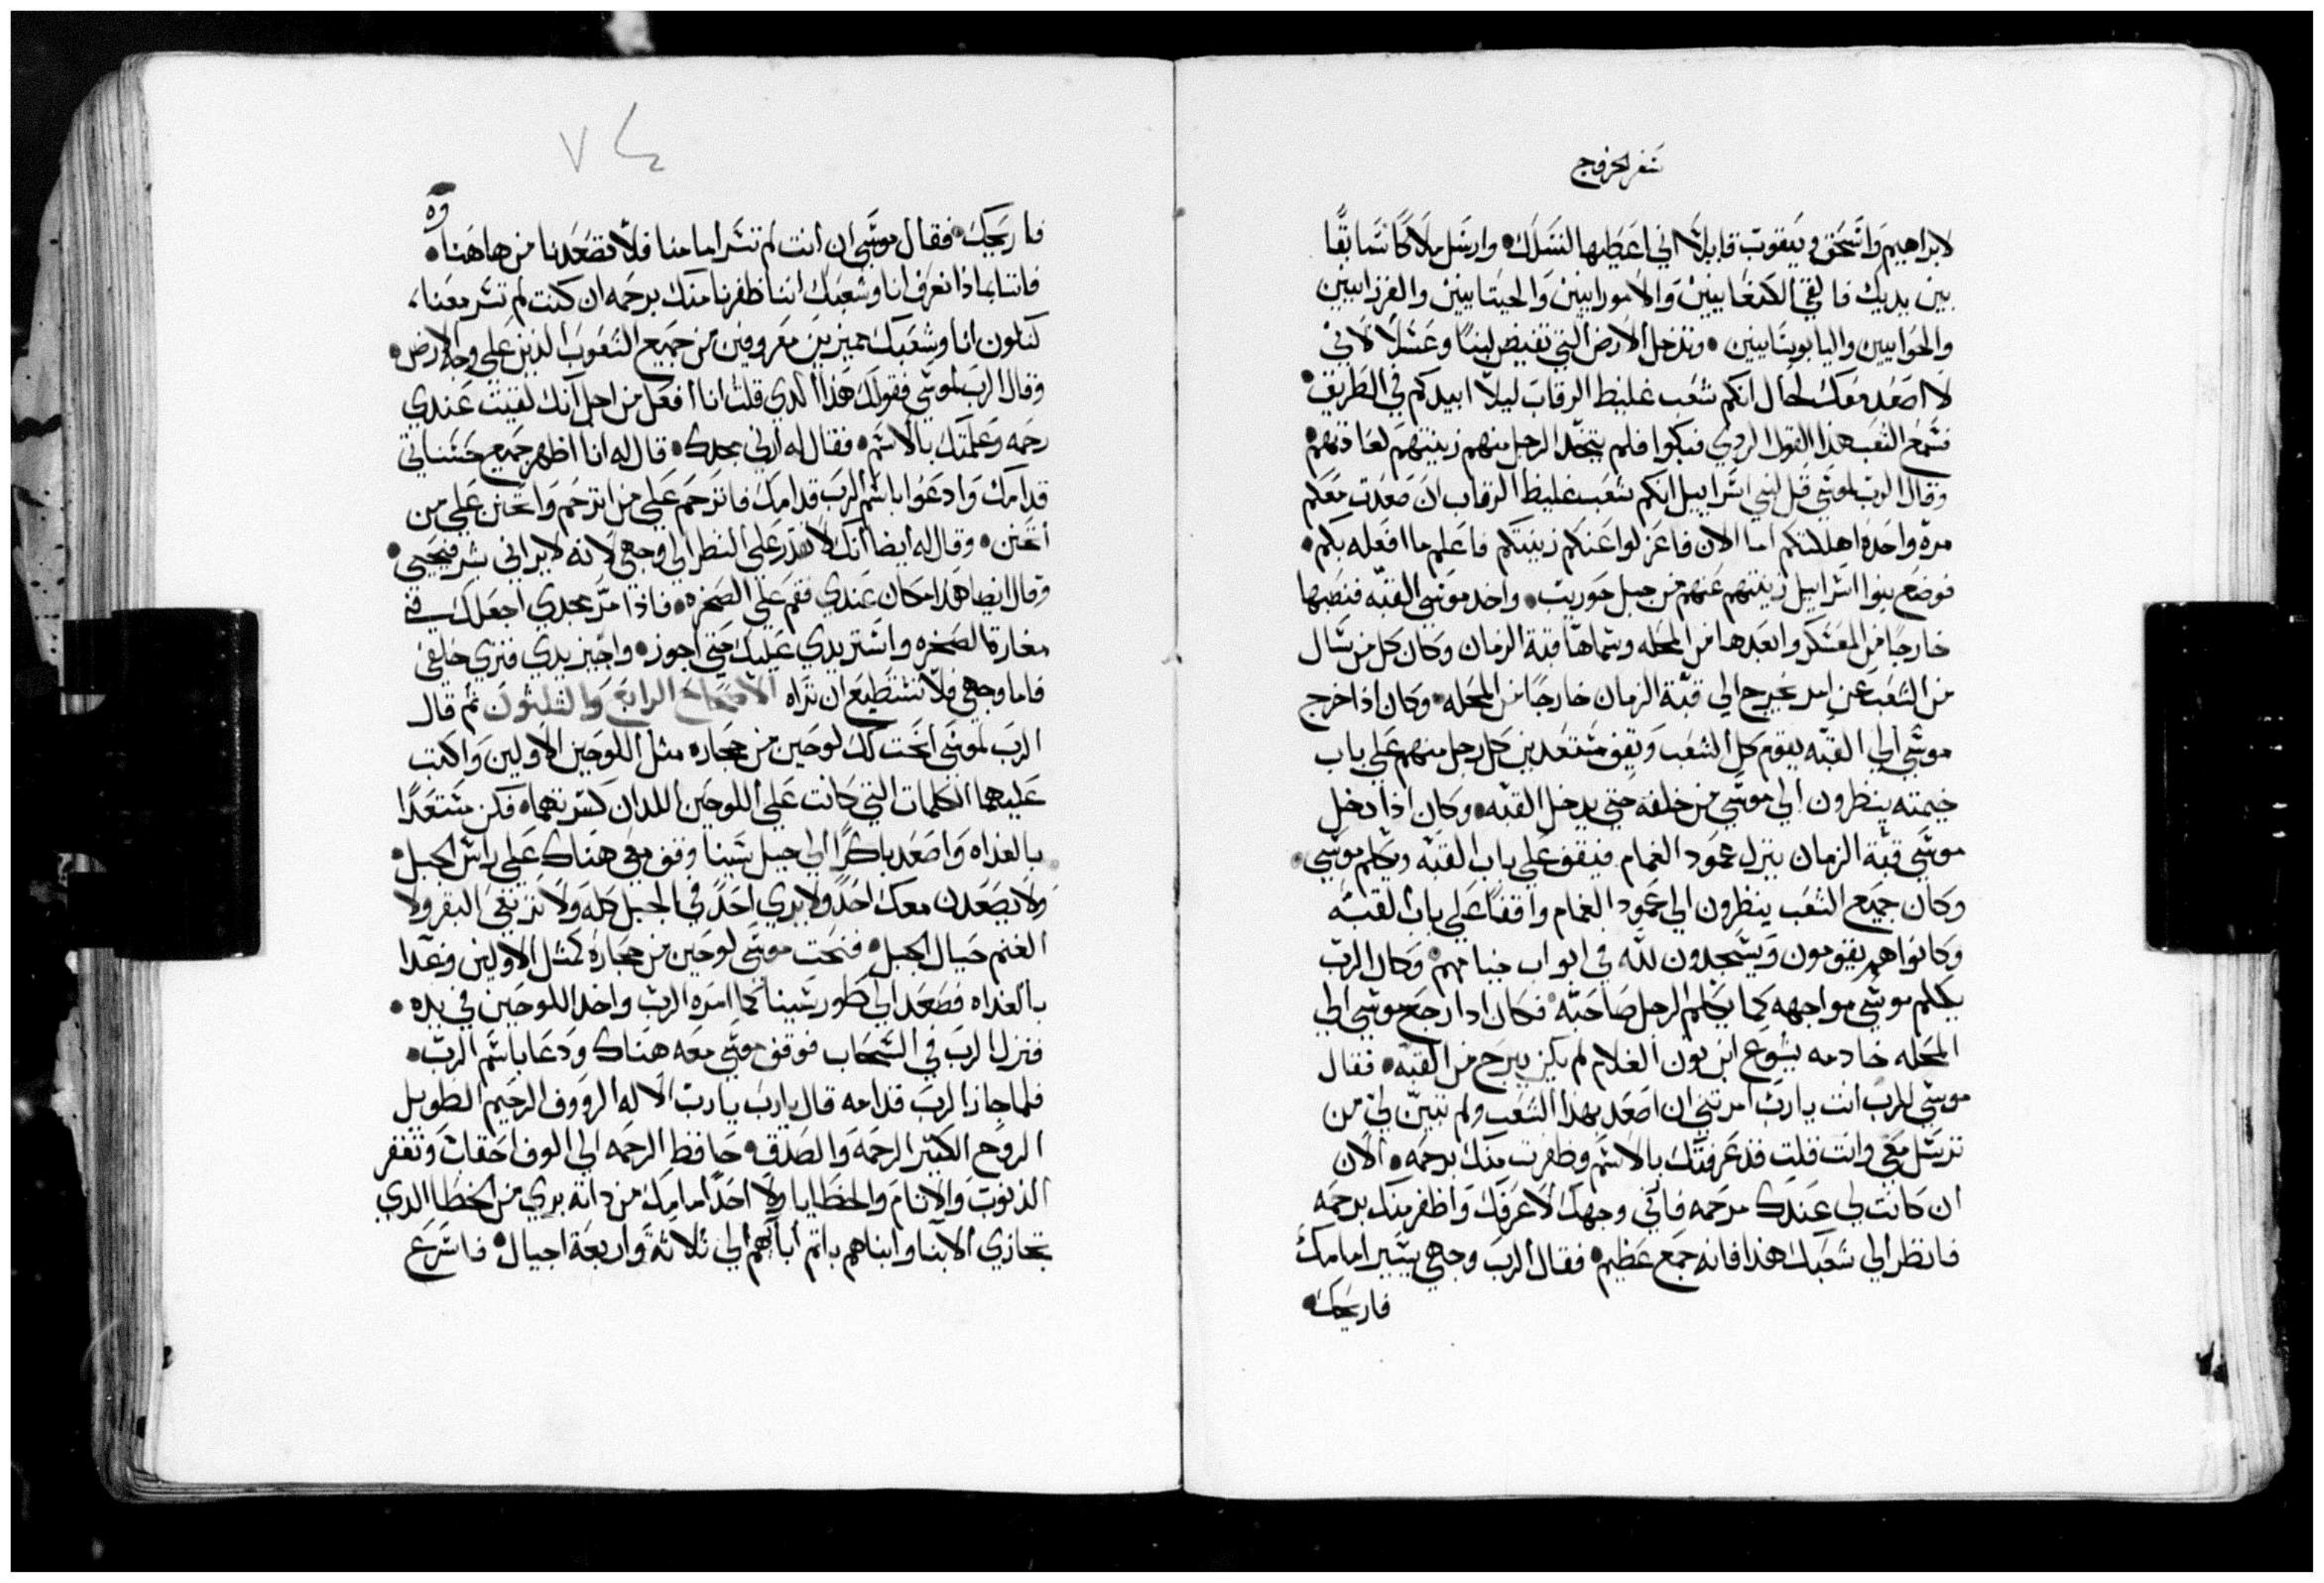 سفر الخروج
لابراهيم واسحق ويعقوب قايلا اني اعطيها لنسلك وارسل ملاكا سابقا
بين يديك فالقي الكنعانيين والامورانيين والحيتانيين والفرزانيين
والحوانيين واليابوسانيين وتدخل الارض التي تفيض لبنا وعسلا لاني
لا اصعد معك لحال انكم شعب غليظ الرقاب ليلا ابيدكم في الطريق
فسمع الشعب هذا القول الردي فبكوا فلم يتخذ الرجل منهم زينتهم لعادتهم
وقال الرب لموسي قل لبني اسراييل انكم شعب غليظ الرقاب ان صعدت معكم
مرة واحدة اهلكتكم اما الان فاعزلوا عنكم زينتكم فاعلم ما افعله بكم
فوضع بنوا اسراييل زينتهم عنهم من جبل حوريب واخذ موسي القبه فنصبها
خارجا من المعسكر وابعدها من المحله وسماها قبة الزمان وكان كل من سال
من الشعب عن امر يخرج الي قبة الزمان خارجا من المحله وكان اذا خرج
موسي الي القبه يقوم كل الشعب ويقف مستعدين كل رجل منهم علي باب
خيمته ينظرون الي موسي من خلفه حتي يدخل القبه وكان اذا دخل
موسي قبة الزمان ينزل عمود الغمام فيقف علي باب القبه ويكلم موسي
وكان جميع الشعب ينظرون الي عمود الغمام واقفا علي باب القبه
وكانوا هم يقومون ويسجدون لله في ابواب خيامهم وكان الرب
يكلم موسي مواجهه كما يكلم الرجل صاحبه فكان اذا رجع موسي الي
المحله خادمه يشوع ابن نون الغلام لم يكن يبرح من القبه فقال
موسي للرب انت يا رب امرتني ان اصعد بهذا الشعب ولم تبين لي من
ترسل معي وانت قلت قد عرفتك بالاسم وظفرت منك برحمه الان
ان كانت لي عندك مرحمه فارني وجهك لاعرفك واظفر منك برحمه
فانظر الي شعبك هذا فانه جمع عظيم فقال الرب وجهي يسير امامك
فاريحك
٧٤
فاريحك فقال موسي ان انت لم تسر امامنا فلا تصعدنا من هاهنا
فاننا بماذا نعرف انا وشعبك اننا ظفرنا منك برحمه ان كنت لم تسر معنا
لنكون انا وشعبك مميزين معروفين من جميع الشعوب الذين علي وجه الارض
وقال الرب لموسي فقولك هذا الدي قلت انا افعل من اجل انك لقيت عندي
رحمه وعلمتك بالاسم فقال له ارني مجدك قال له انا اظهر جميع حسناتي
قدامك وادعوا باسم الرب قدامك فاترحم علي من اترحم واتحنن علي من
اتحنن وقال له ايضا انك لا تقدر علي النظر الي وجهي لانه لا يراني بشر فيحيي
وقال ايضا هذا مكان عندي فقم علي الصخره فاذا مر مجدي اجعلك في
مغارة الصخره واستر يدي عليك حتي اجوز واجيز يدي فتري خلفي
فاما وجهي فلا تستطيع ان تراه الاصحاح الرابع والثلثون ثم قال
الرب لموسي انحت لك لوحين من حجاره مثل اللوحين الاولين واكتب
عليهما الكلمات التي كانت علي اللوحين اللدان كسرتهما فكن مستعدا
بالغداه واصعد باكرا الي جبل سينا وقف معي هناك علي راس الجبل
ولا يصعدن معك احد ولا يري احد في الجبل كله ولا ترتفي البقر ولا
الغنم حيال الجبل فنحت موسي لوحين من حجارة كمثل الاولين وغدا
بالغداه فصعد الي طور سينا كما امره الرب واخد اللوحين في يده
فنزل الرب في السحاب فوقف موسي معه هناك ودعا باسم الرب
فلما جاز الرب قدامه قال يا رب يا رب الاله الرووف الرحيم الطويل
الروح الكثير الرحمه والصدق حافظ الرحمه الي الوف احقاب وتغفر
الذنوب والاثام والخطايا ولا احد امامك من ذاته بري من الخطا الدي
تجازي الابنا وابناهم باثم اباهم الي ثلاثة واربعة اجيال فاسرع